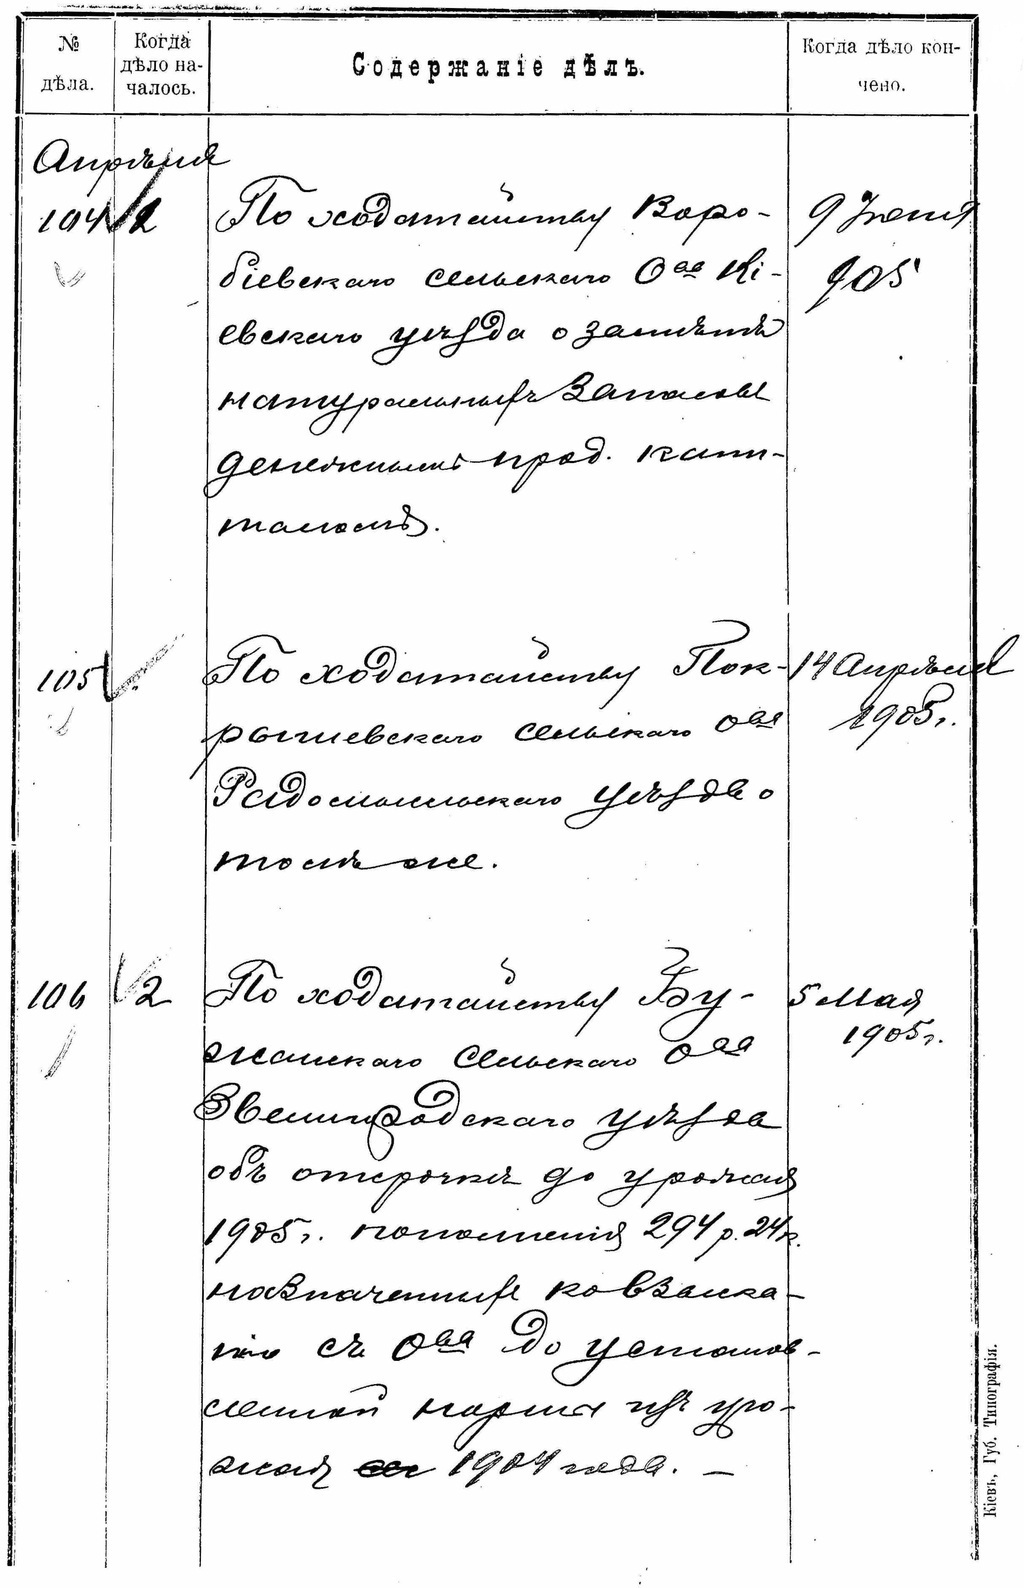 № дѣла.
Когда дѣло началось.
Содержаніе дѣлъ.
Когда дѣло кончено.
Апрѣля
104 2 По ходатайству Воро- 9 Іюня
біевскаго сельскаго Ова Кі- 905
евскаго уѣзда о замѣнѣ
натуральныхъ запасовъ
денежнымъ прод. капи-
таломъ.
105 По ходатайству Пок- 14 Апрѣля
рышевскаго сельскаго Ова 1905 г.
Радомысльскаго уѣзда о
томъ же.
106 2 По ходатайству Бу- 5 Мая
жанскаго сельскаго Ова 1905 г.
Звенигородскаго уѣзда
объ отсрочкѣ до урожая
1905 г. пополненія 294 р. 24 к.
назначенныхъ ко взыска-
нію съ Ова до установ-
ленной нормы изъ уро-
жая 1904 года. —
Кіевъ, Губ. Типографія.